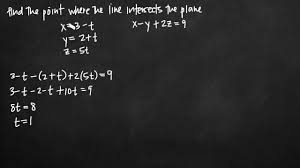 find the point where the line intersects the plane
x=3-t x-y+2z=9
y=2+t
z=5t
3-t-(2+t)+2(5t)=9
3-t-2-t+10t=9
8t=8
t=1